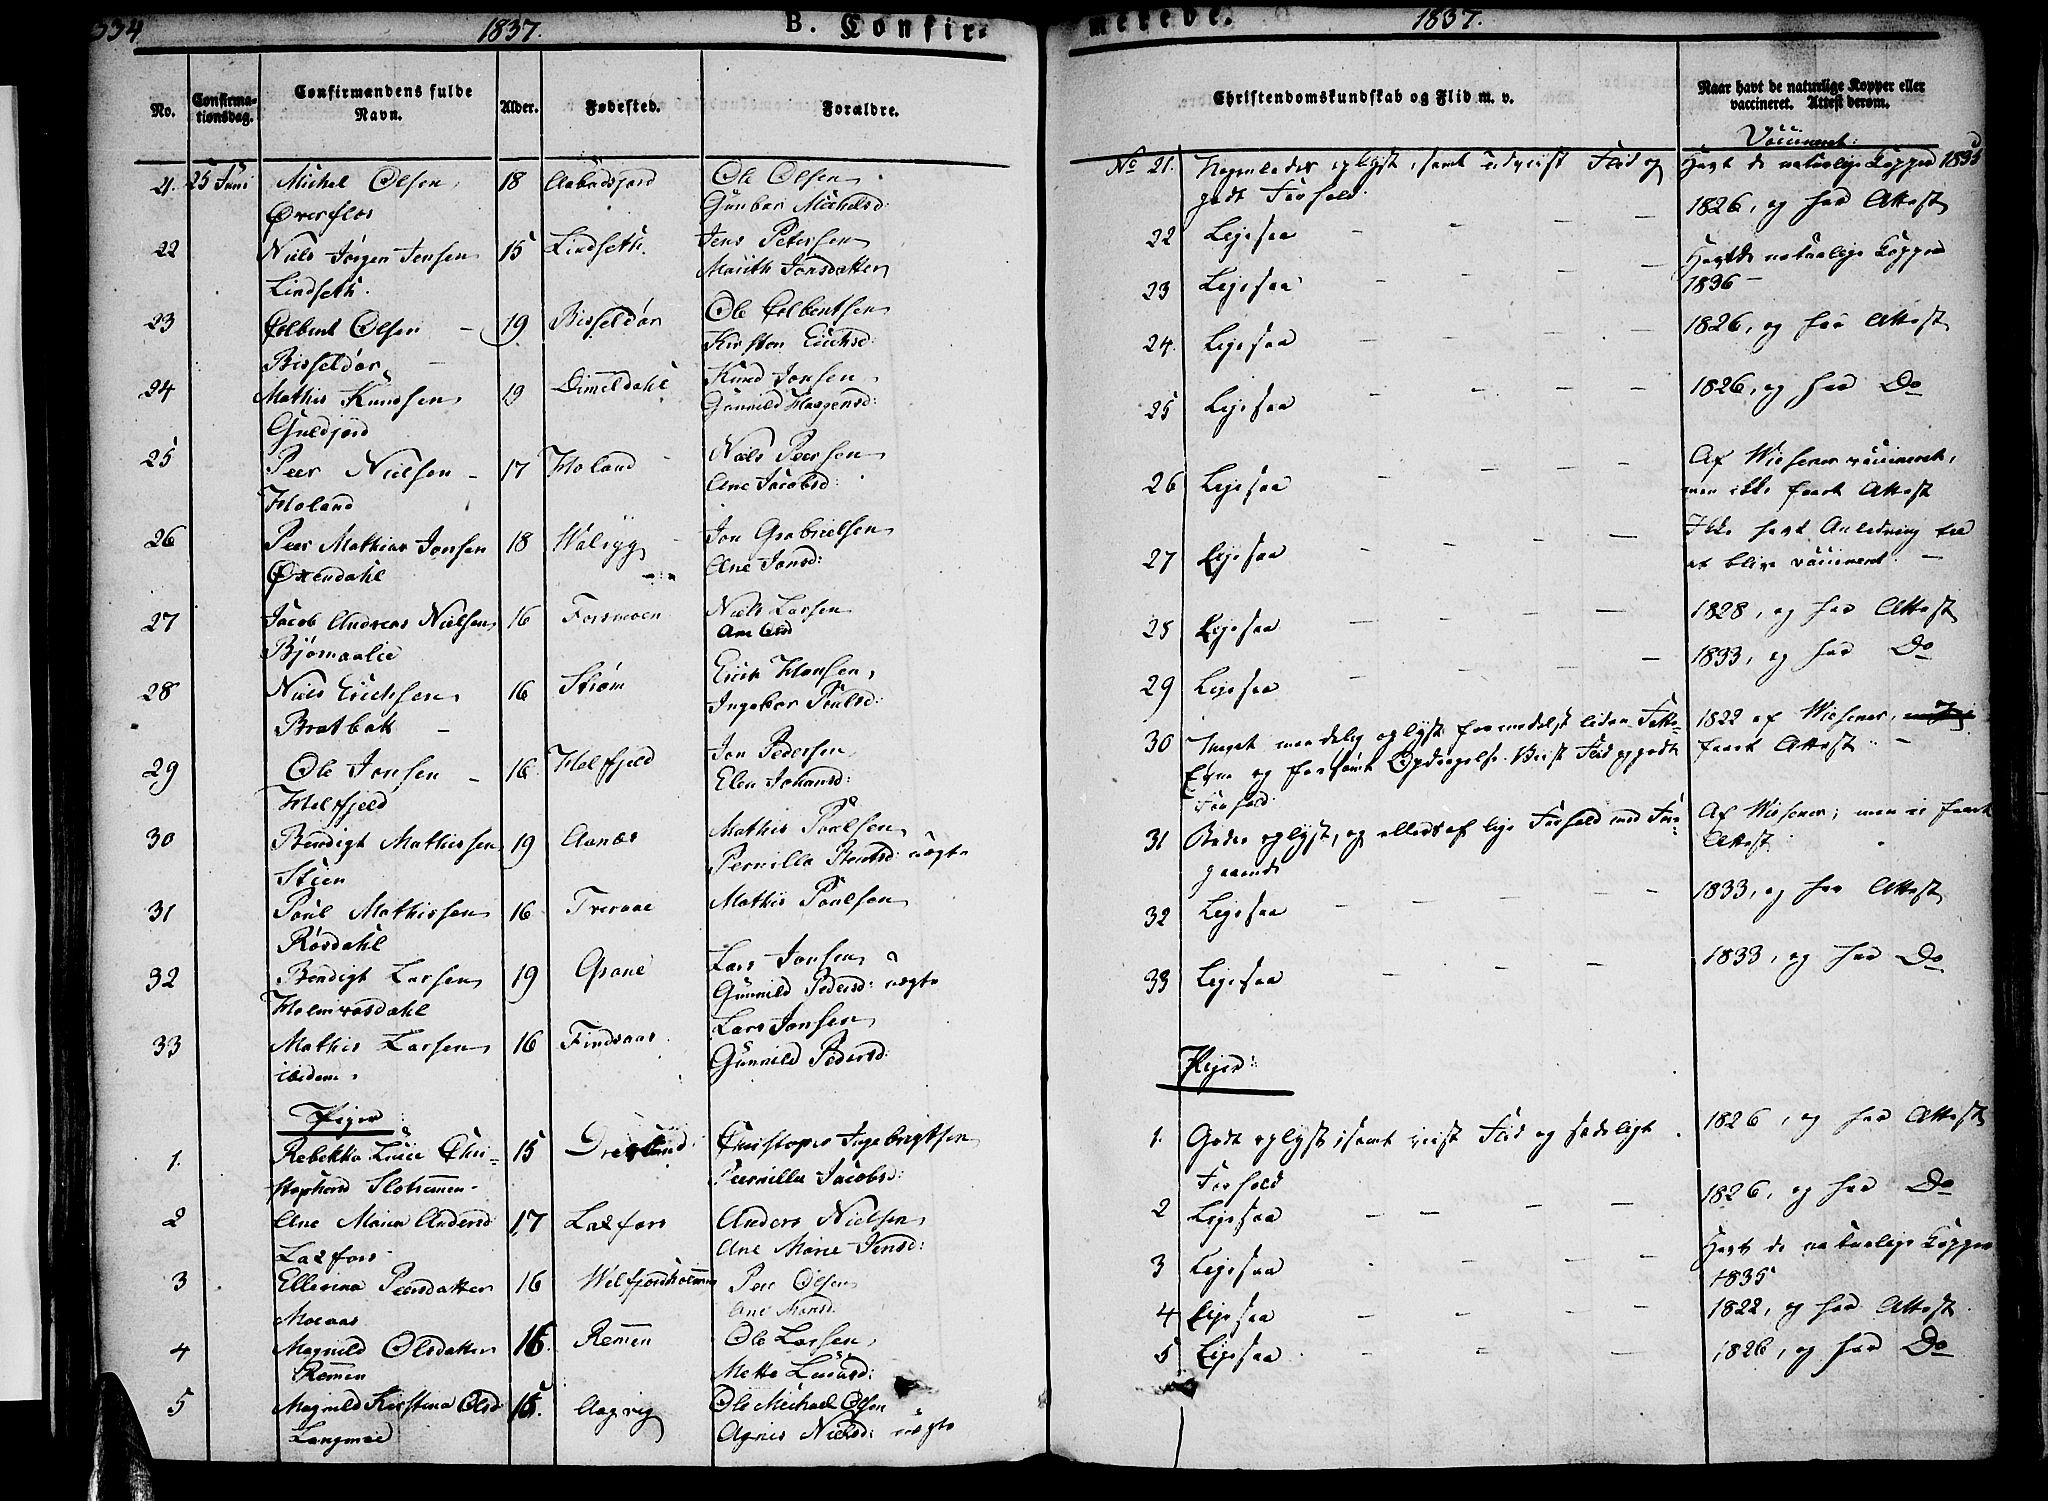 334
1837.
B. Confir-
No.
Confirma-
tionsdag.
Confirmandens fulde
Navn.
Alder.
Fødested.
Forældre.
21. 25 Juni Michel Olsen 18 Aabadsjord Ole Olsen
Øverflos Gunbor Michelsd:
22 Niels Jørgen Jensen 15 Lindseth. Jens Petersen
Lindseth. Marith Jonsdatter
23 Colbent Olsen 19 Bisseldør Ole Colbentsen
Bisseldør Kirsten Erichsd:
24 Mathis Knudsen 19 Dimeldahl Knud Jonsen
Guldjord Gunnild Haagensd:
25 Peer Nielsen 17 Holand Niels Peersen
Holand Ane Jacobsd:
26 Peer Mathias Jonsen 18 Jon Gabrielsen
Øxendahl Ane Jonsd:
27 Jacob Andreas Nielsen 16 Forsmoen Niels Larsen
Bjørnaalie Ane Olsd
28 Niels Erichsen 16 Strøm Erich Hansen
Bratbak Ingebor Poulsd:
29 Ole Jonsen 16 Helfjeld Jon Pedersen
Helfjeld Elen Johansd:
30 Bendigt Mathissen 19 Aanæs Mathis Poulsen
Stien Pernilla Bentsd: uægte
31 Poul Mathissen 16 Trevaae Mathis Poulsen
Røsdahl
32 Bendigt Larsen 19 Grane Lars Jonsen
Holmvasdahl Gunnild Pedersd: uægte
33 Mathis Larsen 16 Findsaas Lars Jonsen
ibidem Gunnild Pedersd:
Piger
1. Rebekka Lucie Chri- 15 Christopher Ingebrigtsen
stophersd Slotsemen Peernilla Jacobsd:
2 Ane Maria Andersd 17 Laxfors Anders Nielsen
Laxfors Ane Marie Jensd:
3 Ellerina Peersdatter 16 Welfjordholmen Peer Olsen
Moeaas Ane Monsd.
4 Magnild Olsdatter 16. Remen Ole Larsen
Remen Mette
5 Magnild Kirstina Olsd 15. Aagvig Ole Michael Olsen
Langmoe Agnis Nielsd: uægte
merede.
1837.
Christendomskundskab og Flid m. v.
Naar havt de naturlige Kopper eller
vaccineret. Attest derom.
Vaccineret:
No 21. oplyst, samt udviist Flid og Havt de naturlige Kopper 1835
godt Forhold. 1826, og har Attest
22 Ligesaa Havt de naturlige Kopper
23 Ligesaa 1836
24. Ligesaa 1826, og har Attest
25 Ligesaa 1826, og har Do
26 Ligesaa Af Wiesener vaccineret,
men ikke faaet Attest
27 Ligesaa Ikke havt Anledning til
at blive vaccineret
28 Ligesaa 1828, og har Attest
29 Ligesaa 1833, og har Do
30 Meget maadelig oplyst formedelst liden Fatte- 1822 af Wiesener,
Evne og forsømt Opdragelse. Viist Flid og godt faaet Attest
Forhold.
31 Bedre oplyst, og ellers af lige Forhold med Fore- Af Wiesener; men ei faaet
gaaende Attest
32 Ligesaa 1833, og har Attest
33 Ligesaa 1833, og har Do
Piger:
1. Godt oplyst, samt viist Flid og sædeligt 1826, og har Attest
Forhold
2 Ligesaa 1826, og har Do
3 Ligesaa Havt de naturlige Kopper
1835
4 Ligesaa 1822, og har Attest
5 Ligesaa 1826, og har Do